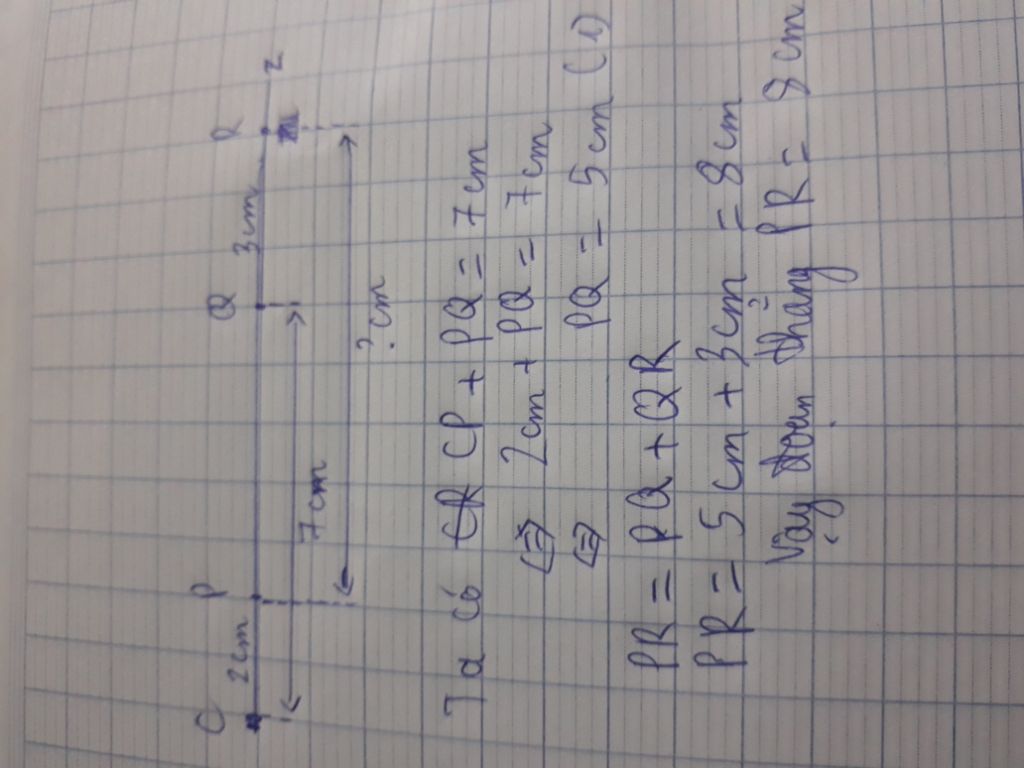 C P Q R z
2cm 3cm
7cm
? cm
Ta có CP + PQ = 7cm
<=> 2cm + PQ = 7cm
<=> PQ = 5cm (1)
PR = PQ + QR
PR = 5cm + 3cm = 8cm
Vậy đoạn thẳng PR = 8cm